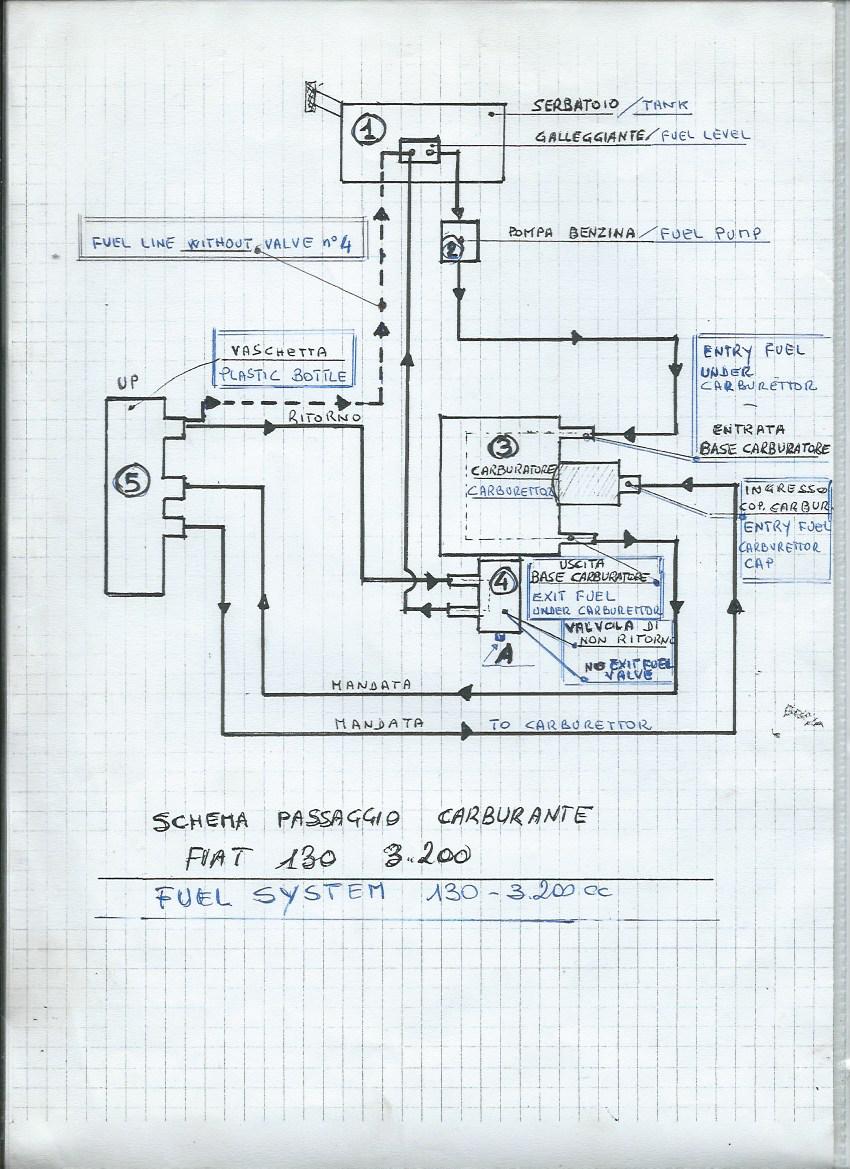 SERBATOIO/TANK
1
GALLEGGIANTE/FUEL LEVEL
FUEL LINE WITHOUT VALVE n°4
2
POMPA BENZINA/FUEL PUMP
VASCHETTA
PLASTIC BOTTLE
UP
ENTRY FUEL
UNDER
CARBURETTOR
-
ENTRATA
BASE CARBURATORE
RITORNO
3
CARBURATORE
CARBURETTOR
5
INGRESSO
COP. CARBUR.
ENTRY FUEL
CARBURETTOR
CAP
4
USCITA
BASE CARBURATORE
EXIT FUEL
UNDER CARBURETTOR
VALVOLA DI
NON RITORNO
NO EXIT FUEL
VALVE
A
MANDATA
MANDATA TO CARBURETTOR
SCHEMA PASSAGGIO CARBURANTE
FIAT 130 3.200
FUEL SYSTEM 130-3.200 cc